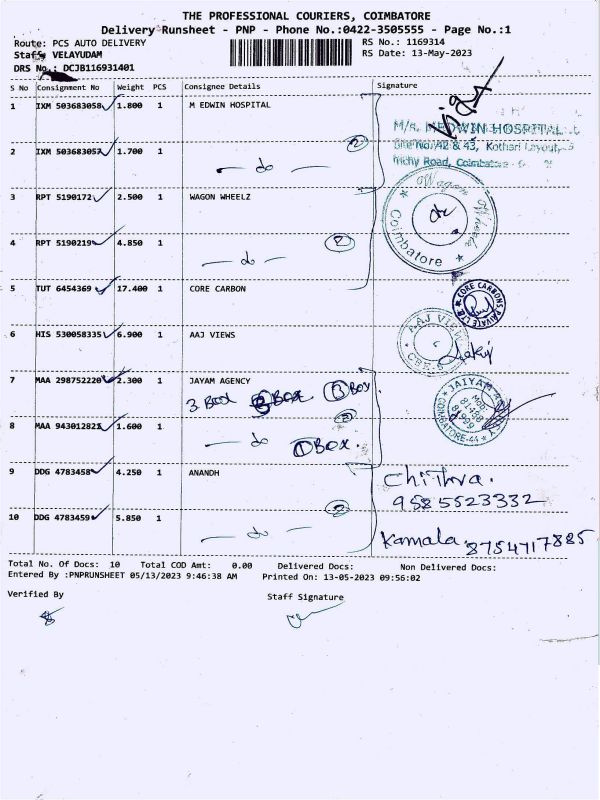 THE PROFESSIONAL COURIERS, COIMBATORE
Delivery Runsheet - PNP - Phone No.:0422-3505555 - Page No.:1
Route: PCS AUTO DELIVERY
RS No.: 1169314
Staff: VELAYUDAM
RS Date: 13-May-2023
DRS No.: DCJB116931401
S No Consignment No Weight PCS Consignee Details Signature
1 IXM 503683058 1.800 1 M EDWIN HOSPITAL
M/s. MEDWIN HOSPITAL
42 & 43, Kothari Layout,
Trichy Road, Coimbatore
2 IXM 503683057 1.700 1 — do — 2
3 RPT 5190172 2.500 1 WAGON WHEELZ
Wagon Wheelz
Coimbatore
4 RPT 5190219 4.850 1 — do — 2
5 TUT 6454369 17.400 1 CORE CARBON
CORE CARBONS PRIVATE LTD
6 HIS 530058335 6.900 1 AAJ VIEWS
AAJ VIEWS
7 MAA 298752220 2.300 1 JAYAM AGENCY
3 Box 3 Box
JAIYAM
COIMBATORE-44
8 MAA 943012821 1.600 1 — do — 2
1 Box.
9 DDG 4783458 4.250 1 ANANDH
Chithra.
9585523332
10 DDG 4783459 5.850 1 — do — 2
Kamala 8754717885
Total No. Of Docs: 10 Total COD Amt: 0.00 Delivered Docs: Non Delivered Docs:
Entered By :PNPRUNSHEET 05/13/2023 9:46:38 AM Printed On: 13-05-2023 09:56:02
Verified By Staff Signature